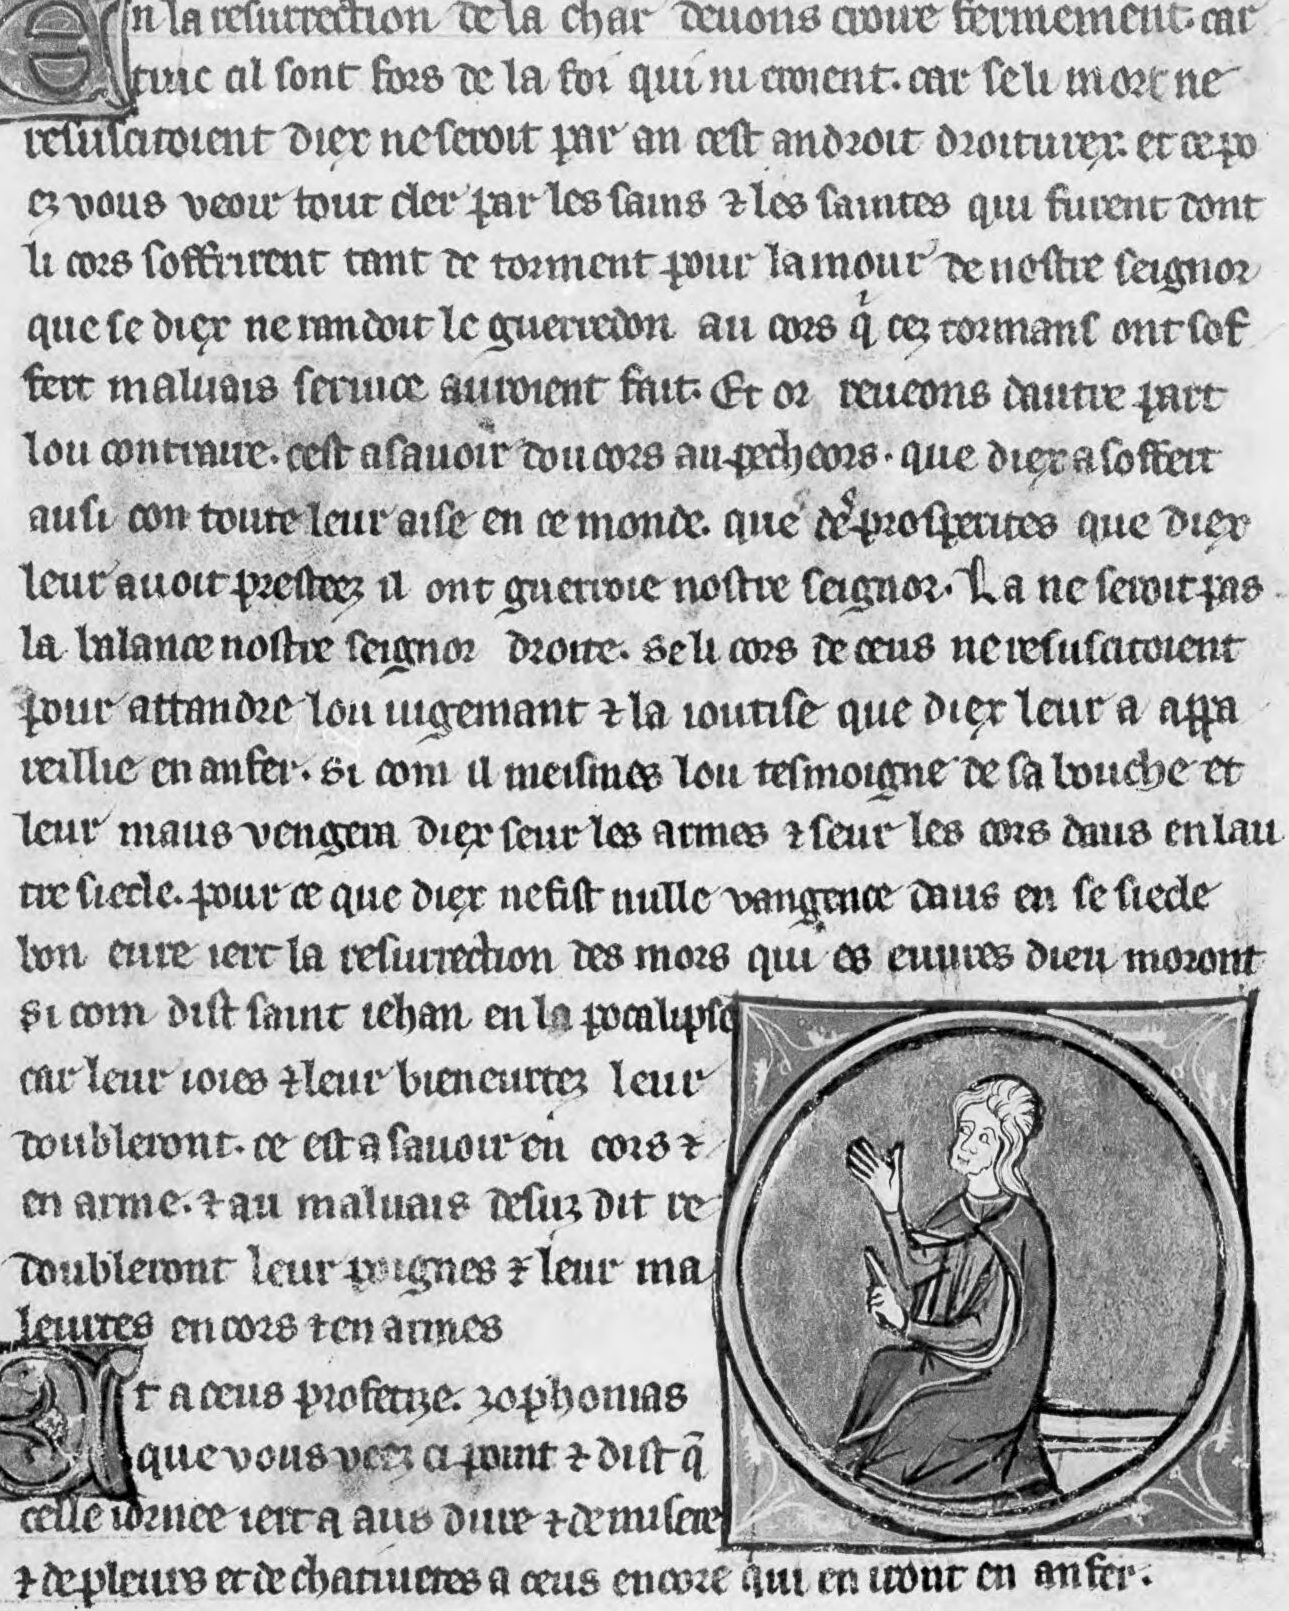 En la resurrection de la char deuons croire fermement. car
tuic cil sont fors de la foi qui ni croient. car se li mort ne
resuscitoient diex ne seroit par an cest androit droiturex. et ce po
ez vous veoir tout cler par les sains ⁊ les saintes qui furent dont
li cors soffrirent tant de torment pour lamour de nostre seignor
que se diex ne randoit le guerredon au cors qi cez tormans ont sof
fert maluais seruice auroient fait. Et or reueons dautre part
lou contraire. cest asauoir dou cors au pecheors. que diex a soffert
ausi con toute leur aise en ce monde. que des prosperites que diex
leur auoit prestees il ont guerroie nostre seignor. La ne seroit pas
la balance nostre seignor droite. se li cors de ceus ne resuscitoient
pour attandre lou iugemant ⁊ la ioutise que diex leur a appa
reillie en anfer. si com il meismes lou tesmoigne de sa bouche et
leur maus vengera diex seur les armes ⁊ seur les cors daus en lau
tre siecle. pour ce que diex ne fist nulle vangence daus en se siecle
bon eure iert la resurrection des mors qui es euures dieu moront
si com dist saint iehan en la pocalipse
car leur ioies ⁊ leur bieneurtez leur
doubleront. ce est a sauoir en cors ⁊
en arme. ⁊ au maluais desuz dit re
doubleront leur poignes ⁊ leur ma
leurtes en cors ⁊ en armes
Et a ceus profetize. zophonias
que vous veez ci point ⁊ dist q̄
celle iornee iert a aus dure ⁊ de misere
⁊ de pleurs et de chatiuetes a ceus encore qui en iront en anfer.